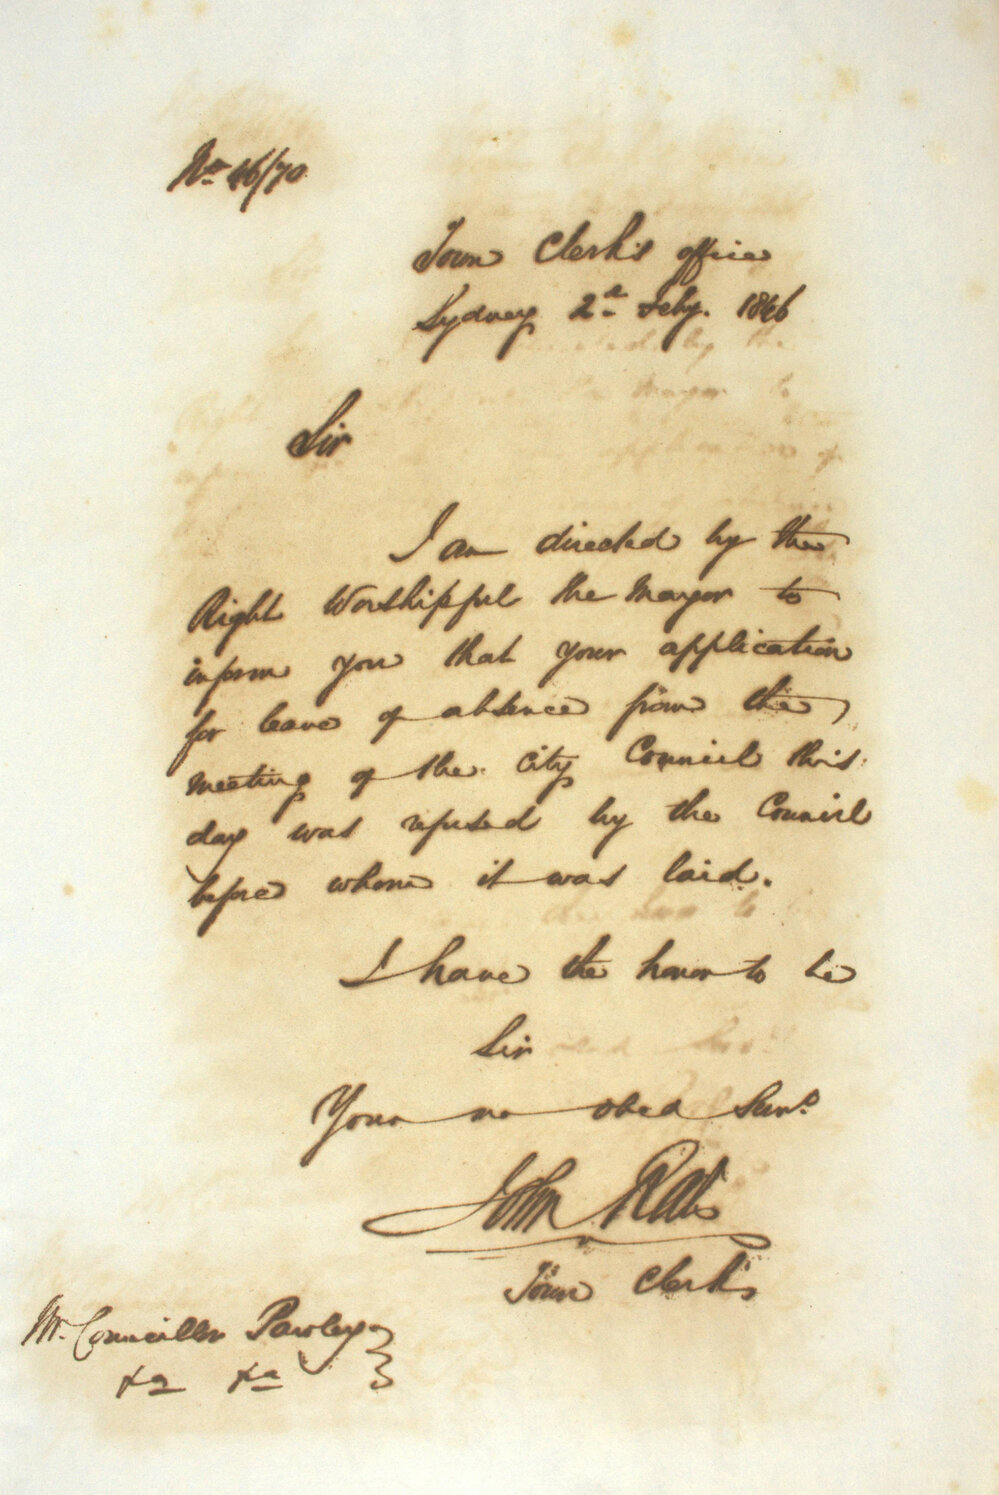 No 46/70
Town Clerk's office
Sydney 2d Feby. 1846
Sir
I am directed by the
Right Worshipful the Mayor to
inform you that your application
for leave of absence from the
meeting of the City Council this
day was refused by the Council
before whom it was laid.
I have the honor to be
Sir
Your mo obed Servt
John Rae
Town Clerk
Mr. Councillor Pawley
&c &c